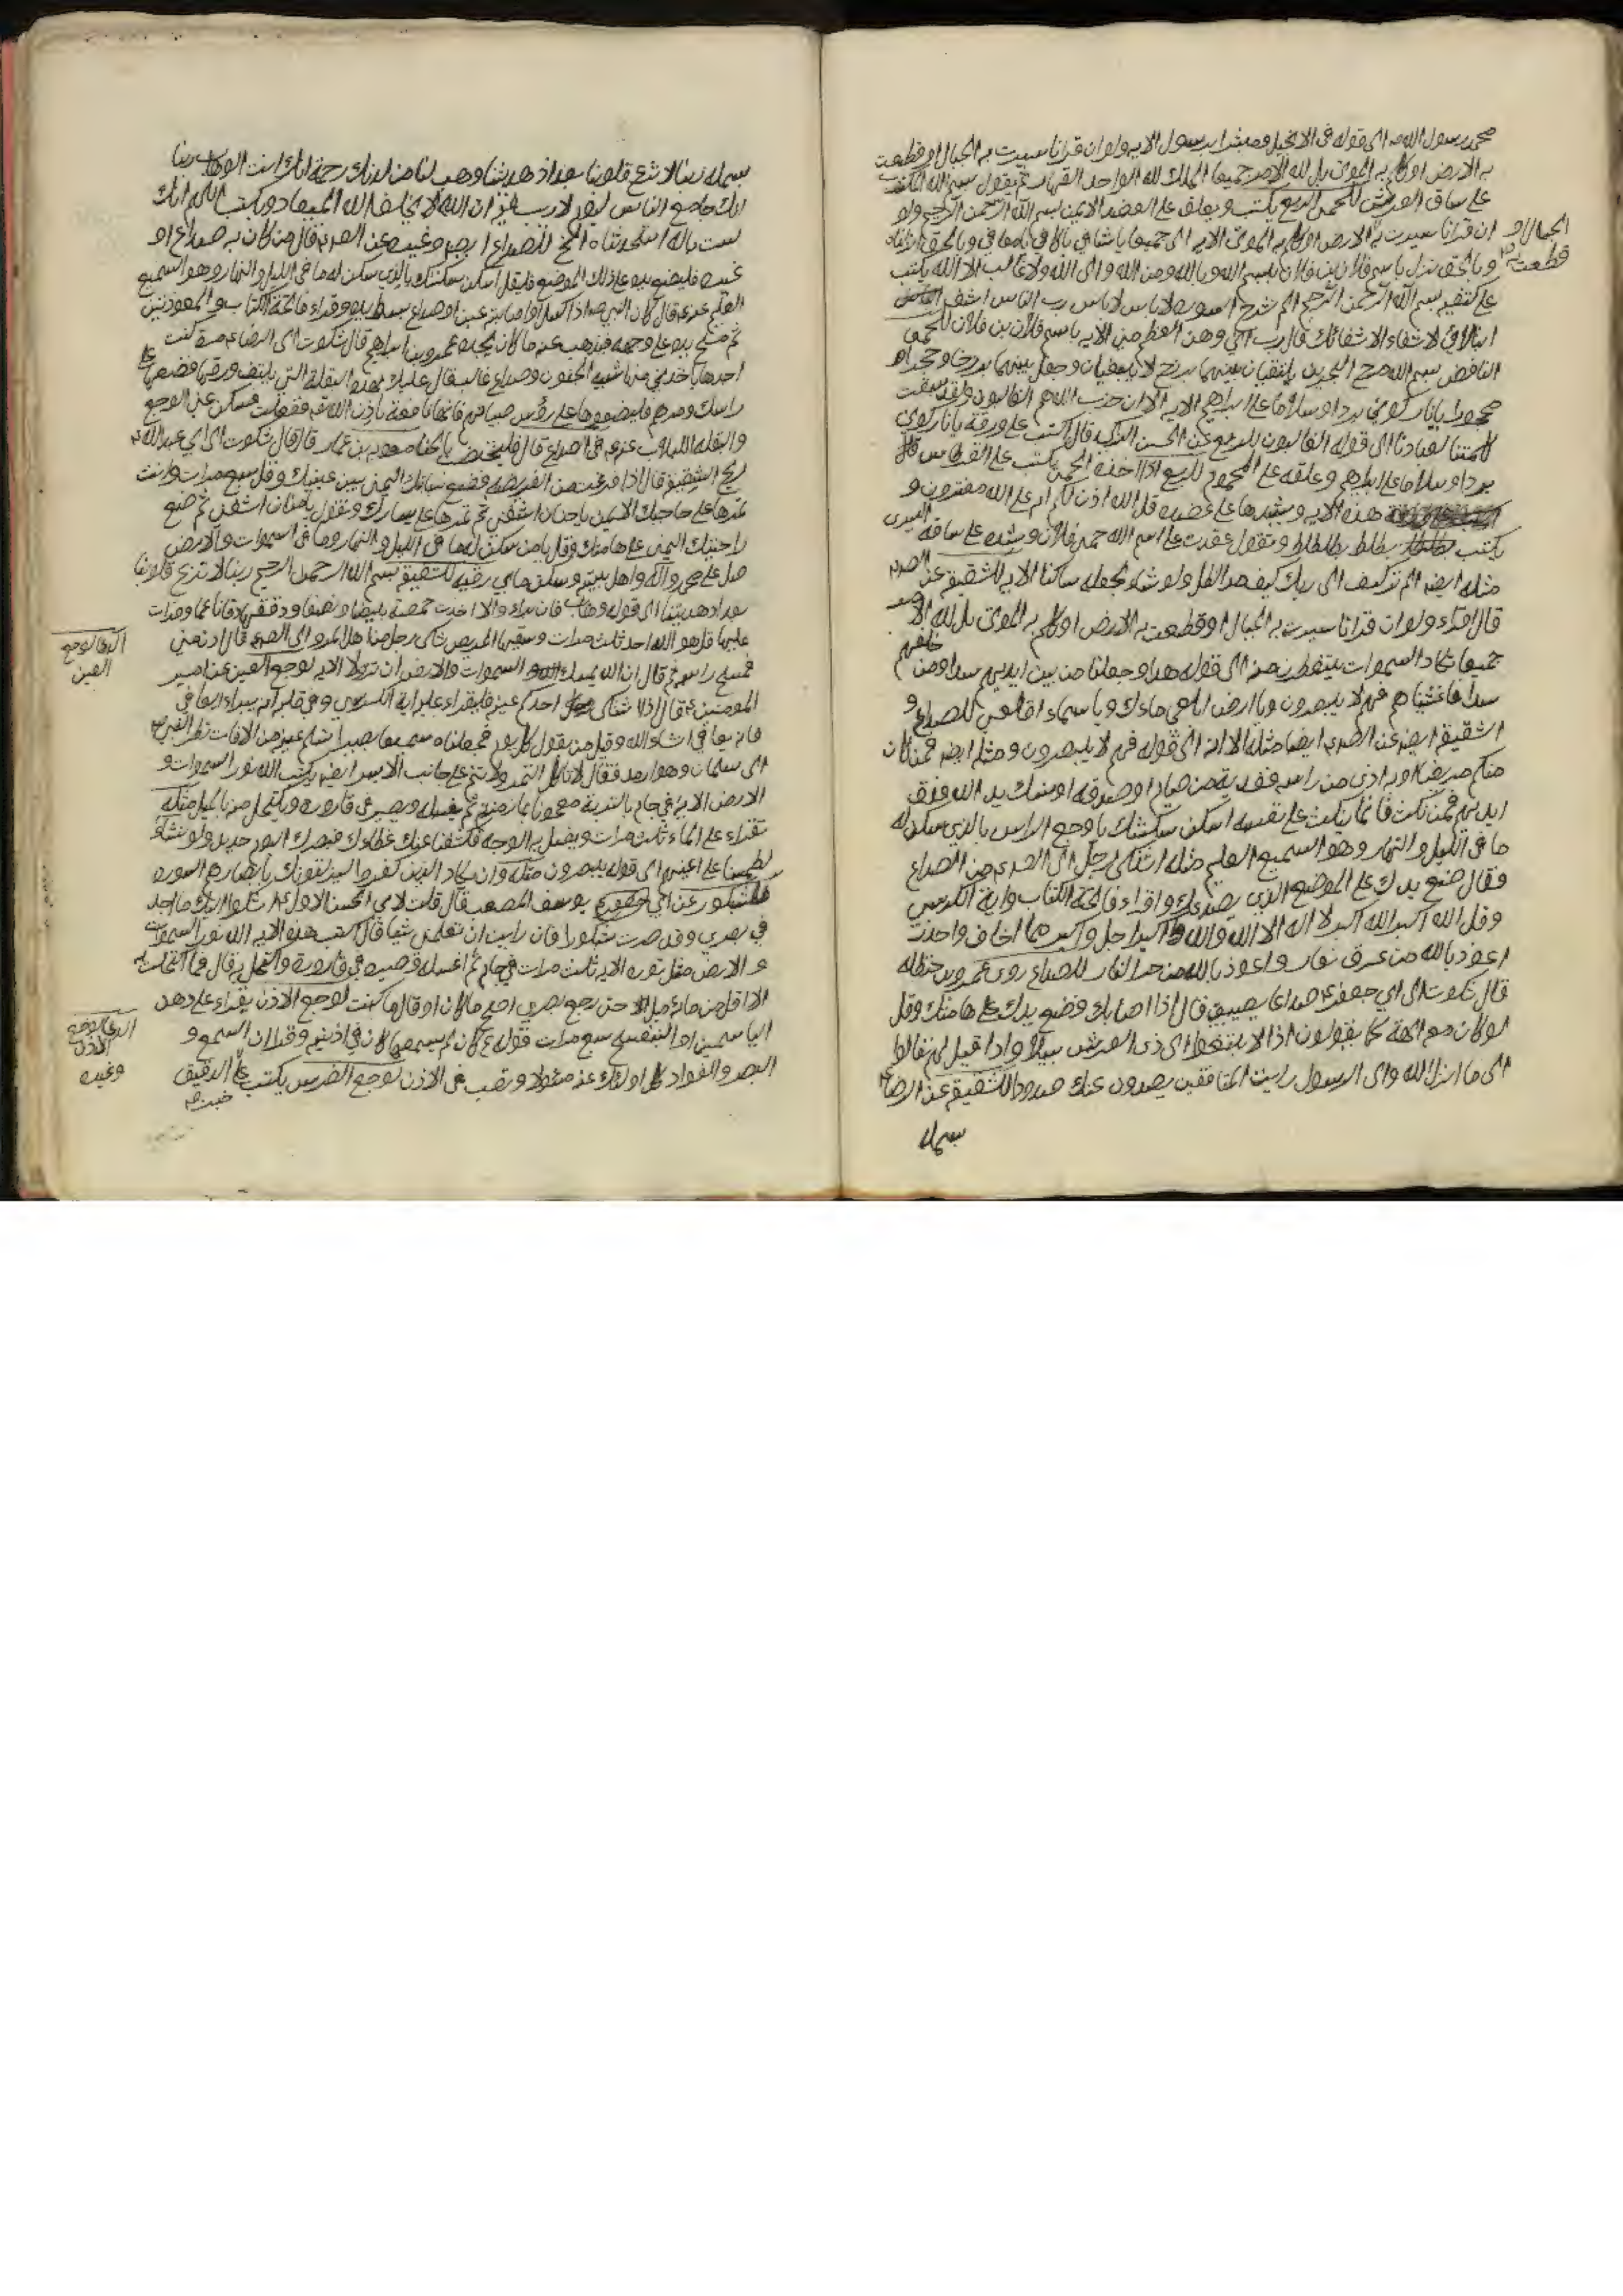 محمد رسول الله الى قوله فى الانجيل ومبشرا برسول الايه ولو ان قرانا سيرت به الجبال او قطعت
به الارض او كلم به الموتى بل لله الامر جميعا الملك لله الواحد القهار ثم يقول بسم الله
على ساق العرش للحمى الربع يكتب ويعلق على العضد الايمن بسم الله الرحمن الرحيم ولو
ان قرانا سيرت به الارض او كلم به الموتى الايه الى جميعا يا شافي يا كافي يا معافي وبالحق انزلناه
الجبال او
قطعت
وبالحق نزل باسم فلان بن فلان بسم الله وبالله ومن الله والى الله ولا غالب الا الله يكتب
على كتفيه بسم الله الرحمن الرحيم الم نشرح السوره لا باس لا باس رب الناس اشف الباس
لا شفاء الا شفائك قال رب انى وهن العظم منى الايه باسم فلان بن فلان للحمى
النافض بسم الله مرج البحرين يلتقيان بينهما برزخ لا يبغيان وجعل بينهما برزخا وحجرا
محجورا يا نار كوني بردا وسلاما على ابراهيم الايه الا ان حزب الله هم الغالبون ولقد سبقت
كلمتنا لعبادنا الى قوله الغالبون للربع عن الحسن قال اكتب على ورقة يا نار كوني
بردا وسلاما على ابراهيم وعلقه على المحموم للربع اذا اخذه الحمى يكتب على القرطاس قال
هذه الايه ويشدها على عضده قل الله اذن لكم ام على الله تفترون و
يكتب بطلط بطلطلط وتقول عقدت على اسم الله حمى فلان ويشده على ساقه اليسرى
مثله ايضا الم تر كيف الى ربك كيف مد الظل ولو شاء لجعله ساكنا الايه للشقيقة عن الصدع
قال اقراء ولو ان قرانا سيرت به الجبال او قطعت به الارض او كلم به الموتى بل لله الامر
جميعا تكاد السموات يتفطرن منه الى قوله هدا وجعلنا من بين ايديهم سدا ومن خلفهم
سدا فاغشيناهم فهم لا يبصرون ويا ارض ابلعي ماءك ويا سماء اقلعي للصداع و
الشقيقة ايضا عن ايضا مثله الا انه الى قوله فهم لا يبصرون ومثله ايضا فمن كان
منكم مريضا او به اذى من راسه ففدية من صيام او صدقه او نسك يد الله فوق
ايديهم فمن نكث فانما ينكث على نفسه اسكن سكنتك يا وجع الراس بالذي سكن له
ما في الليل والنهار وهو السميع العليم مثله اشتكى رجل الى من الصداع
فقال ضع يدك على الموضع الذي يصدعك واقراء فاتحة الكتاب واية الكرسي
وقل الله اكبر الله اكبر لا اله الا الله والله اكبر اجل واكبر مما اخاف واحذر
اعوذ بالله من عرق نعار واعوذ بالله من حر النار للصداع روى عمرو بن حنظله
قال شكوت الى ابي جعفر صداعا يصيبني قال اذا اصابك فضع يدك على هامتك وقل
لو كان معه الهة كما يقولون اذا لابتغوا الى ذى العرش سبيلا واذا قيل لهم تعالوا
الى ما انزل الله والى الرسول رايت المنافقين يصدون عنك صدودا للشقيقة عن الرضا
بسمله
بسمله ربنا لا تزغ قلوبنا بعد اذ هديتنا وهب لنا من لدنك رحمة انك انت الوهاب ربنا
انك جامع الناس ليوم لا ريب فيه ان الله لا يخلف الميعاد ويكتب اللهم انك
لست باله استحدثناه الخ للصداع وغيره عن قال من كان به صداع او
غيره فليضع يده على ذلك الموضع فليقل اسكن سكنتك بالذي سكن له ما في الليل والنهار وهو السميع
العليم قال كان النبي اذا كسل او اصابته عين او صداع بسط يده وقراء فاتحة الكتاب والمعوذتين
ثم مسح يده على وجهه فيذهب عنه ما كان يجده عمرو بن ابراهيم قال شكوت الى الرضا
ما يأخذني من شبيه الجنون وصداع غالب قال عليك بهذه البقلة التي يلتف ورقها فضعها على
راسك ومرهم فليضعوها على رؤس صبيانهم فانها نافعة باذن الله ففعلت فسكن عني الوجع
والبقله اللبلاب في الصداع قال فليختضب بالحنا معاويه بن عمار قال شكوت الى ابي عبد الله
ريح الشقيقة قال اذا فرغت من الفريضه فضع سبابتك اليمنى بين عينيك وقل سبع مرات وانت
تمرها على حاجبك الايمن يا حنان اشفني ثم تمرها على يسارك وتقول يا منان اشفني ثم ضع
راحتك اليمنى على هامتك وقل يا من سكن له ما في الليل والنهار وما في السموات والارض
صل على محمد واله واهل بيته وسكن ما بي رقيه للشقيقة بسم الله الرحمن الرحيم ربنا لا تزغ قلوبنا
بعد اذ هديتنا الى قوله وهاب فان برا والا اخذت حمصة بيضا ونصفا ودققتهما دقا ناعما وقرات
عليهما قل هو الله احد ثلث مرات وسقيتها المريض شكى رجل من اهل مرو الى قال ادن منى
فمسح راسه ثم قال ان الله يمسك السموات والارض ان تزولا الايه لوجع العين عن امير
الدعا لوجع
العين
المومنين قال اذا اشتكى احدكم عينه فليقراء عليها اية الكرسي وفي قلبه انه يبرا
فانه يعافى انشاء الله وقيل من يقول كل يوم فجعلناه سميعا بصيرا تسلم عينه من الافات نظر النبي
الى سلمان وهو ارمد فقال لا تاكل التمر ولا تنم على جانب الايسر ايضا يكتب الله نور السموات و
الارض الايه في جام ثم يغسله ويصير في قارورة ويكتحل منه بالميل مثله
تقراء على الماء ثلث مرات ويغسل به الوجه فكشفنا عنك غطاءك فبصرك اليوم حديد ولو نشاء
لطمسنا على اعينهم الى قوله يبصرون مثله وان يكاد الذين كفروا ليزلقونك بابصارهم السوره
للشبكور عن ابي يوسف المصعب قال قلت لابي الحسن الاول اشكوا اليك ما اجد
في بصري وقد صرت شبكورا فان رايت ان تعلمني شيا قال اكتب هذه الايه الله نور السموات
والارض مثل نوره الايه ثلث مرات في جام ثم اغسله وصيره في قارورة واكتحل به قال فما اكتحلت
الا اقل من مائه ميل حتى رجع بصري اصح ما كان او قال ما كنت لوجع الاذن يقراء على دهن
الدعا لوجع
الاذن
وغيره
الياسمين او البنفسج سبع مرات قوله كان لم يسمعها كان في اذنيه وقرا ان السمع و
البصر والفواد كل اولئك كان عنه مسئولا وتصب فى الاذن لوجع الضرس يكتب على الدقيق